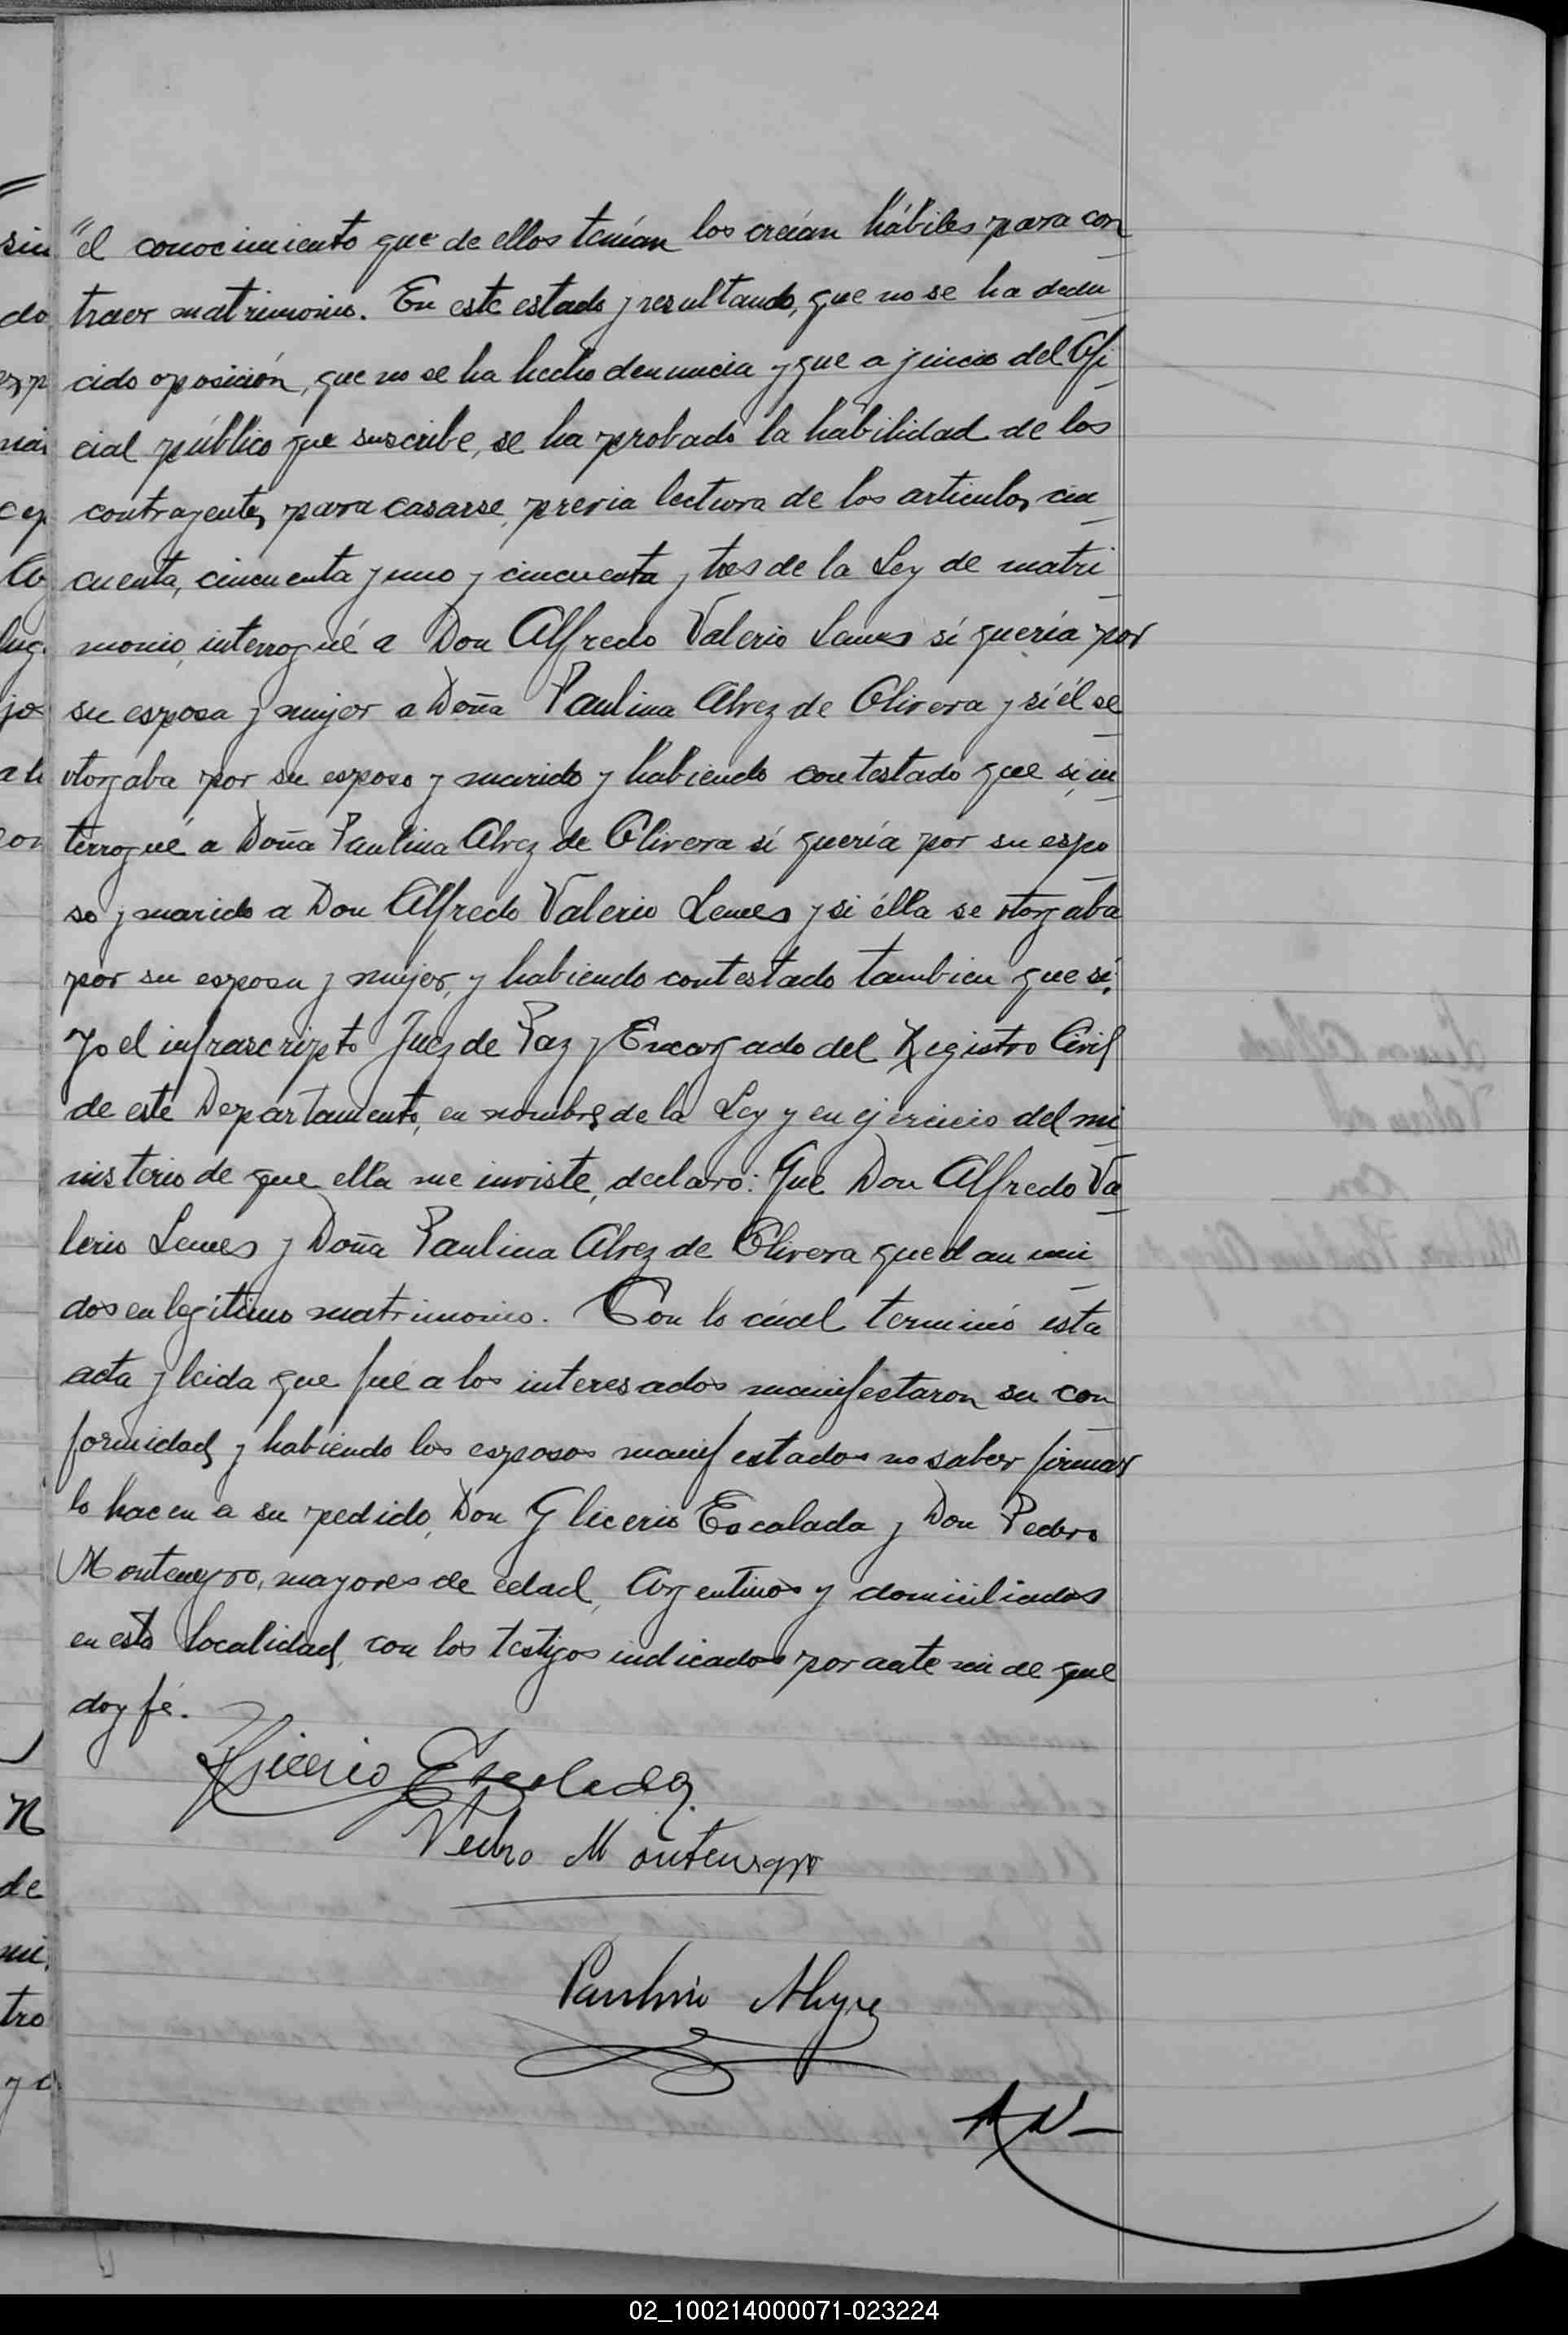 "el conocimiento que de ellos tenían los creían hábiles para con
traer matrimonio. En este estado y resultando, que no se ha dedu
cido oposición, que no se ha hecho denuncia y que a juicio del Ofi
cial público que suscribe, se ha probado la habilidad de los
contrayentes para casarse, previa lectura de los articulos cin
cuenta, cincuenta y uno y cincuenta y tres de la Ley de matri
monio, interrogué a Don Alfredo Valerio Lemes sí quería por
su esposa y mujer a Doña Paulina Alvez de Olivera y sí él se
otorgaba por su esposo y marido y habiendo contestado que si, in
terrogué a Doña Paulina Alvez de Olivera sí quería por su espo
so y marido a Don Alfredo Valerio Lemes y si élla se otorgaba
por su esposa y mujer, y habiendo contestado tambien que sí;
Yo el infrascripto Juez de Paz y Encargado del Registro Civil
de este Departamento, en nombre de la Ley y en ejercicio del mi
nisterio de que ella me inviste, declaro: Que Don Alfredo Va
lerio Lemes y Doña Paulina Alvez de Olivera quedan uni
dos en legítimo matrimonio. Con lo cúal terminó esta
acta y leida que fué a los interesados manifestaron su con
formidad, y habiendo los esposos manifestados no saber firmar
lo hacen a su pedido, Don Glicerio Escalada y Don Pedro
Montenegro, mayores de edad, Argentinos y domiciliados
en esta localidad, con los testigos indicados por ante mi de que
doy fé.
Glicerio Escalada
Pedro Montenegro
02_100214000071-023224